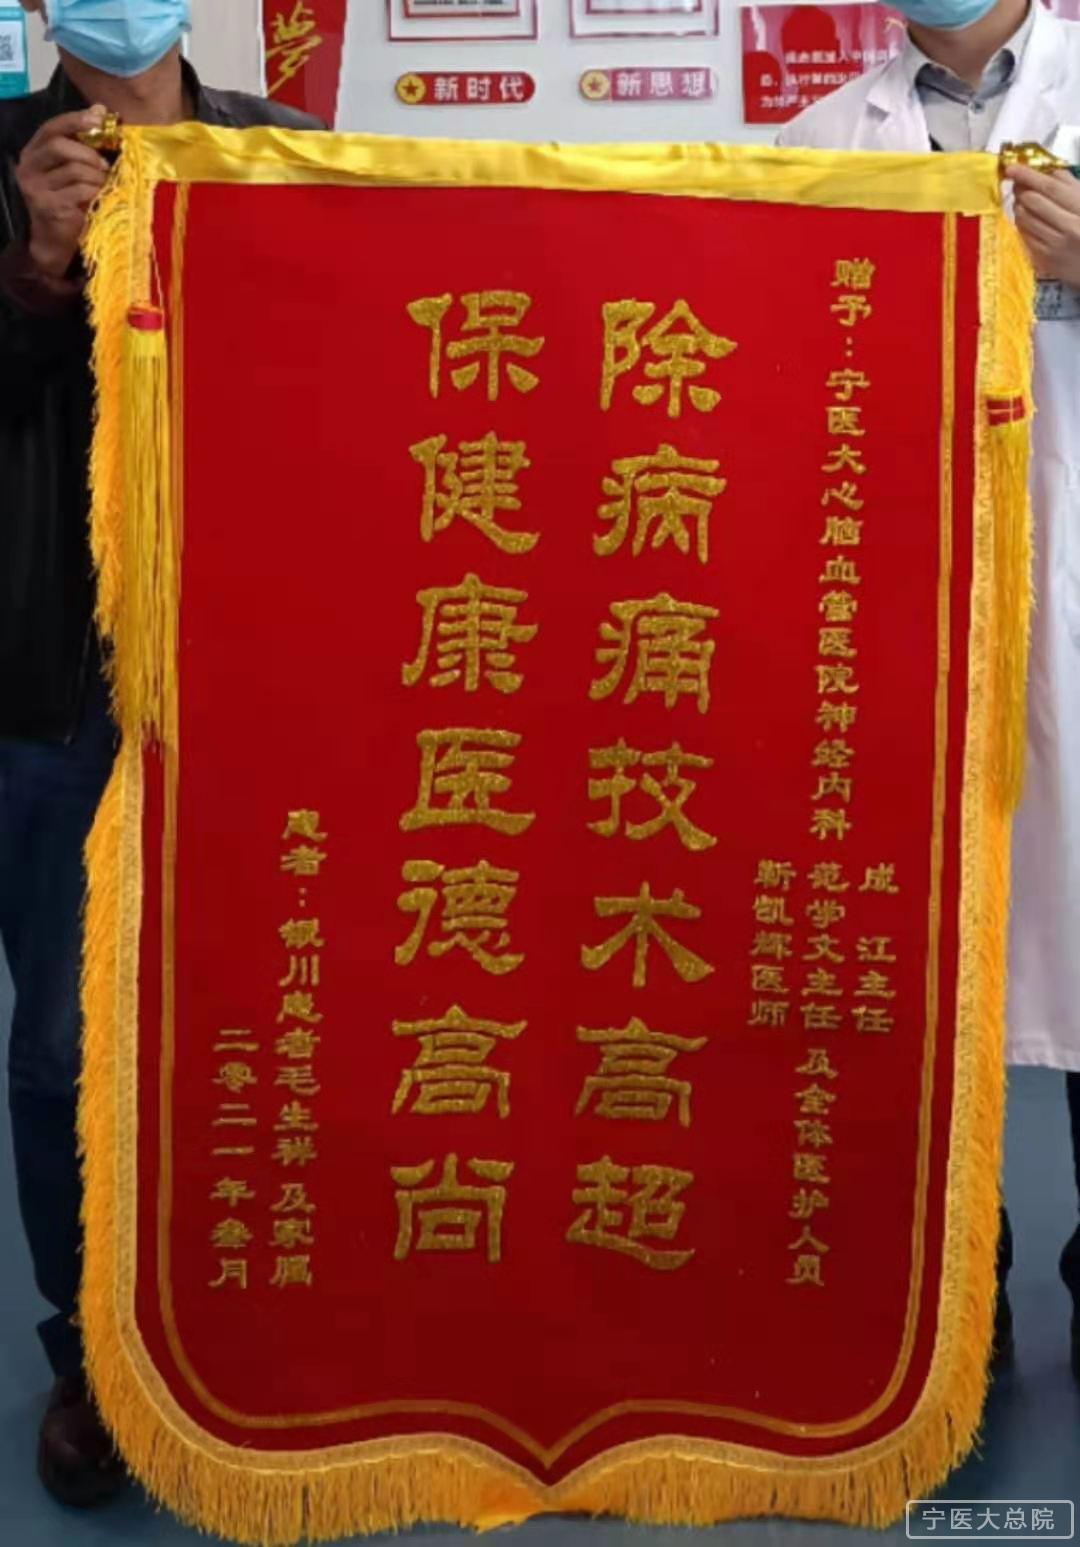 夢
新时代
新思想
赠予：宁医大心脑血管医院神经内科
成江主任
范学文主任
靳凯辉医师
及全体医护人员
除病痛技术高超
保健康医德高尚
患者：银川患者毛生祥及家属
二零二一年叁月
宁医大总院